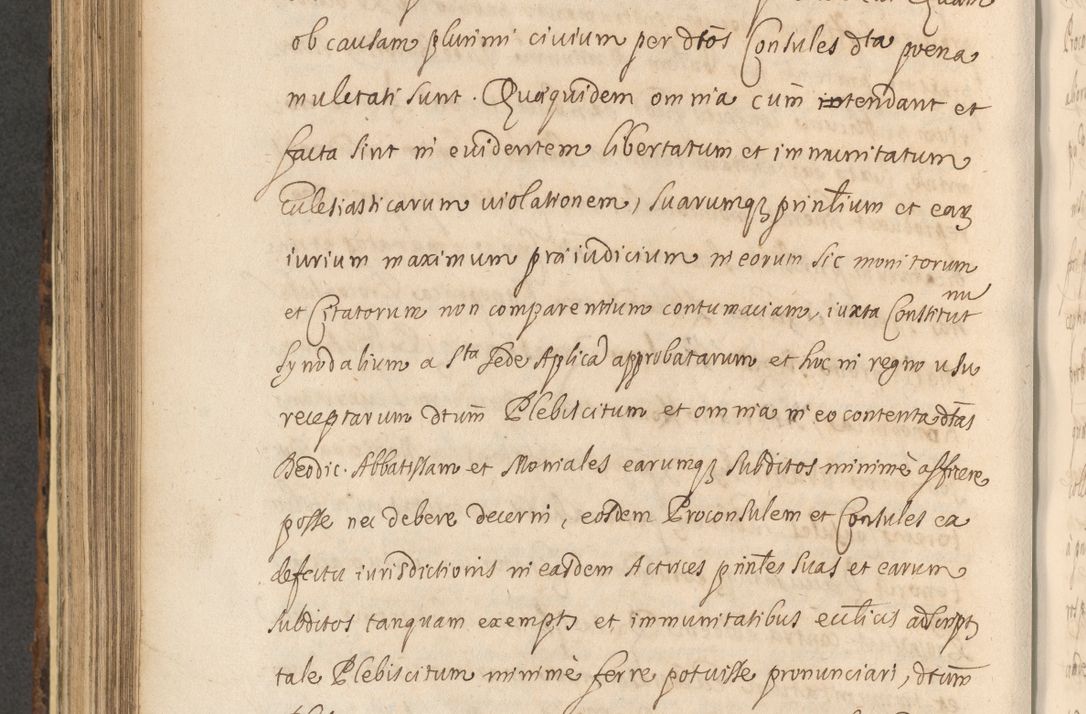 ob causam plurimi civium per dtos Consules dta poena
mulctati sunt. Quaequidem omnia cum intendant et
facta sint in euidentem libertatum et immunitatum
Ecclesiasticarum uiolationem, suarumqꝫ printium et eaꝝ
iurium maximum praeiudicium in eorum sic monitorum
et Citatorum non comparentium contumaciam, iuxta Constitutnu
synodalium a Sta Sede Aplica approbatarum et hoc in regno usu
receptarum dtum Plebiscitum et omnia in eo contenta dtas
Deodic. Abbatissam et Moniales earumqꝫ subditos minimè afficere
posse nec debere decerni, eosdem Proconsulem et Consules ex
defectu iurisdictionis in easdem Actrices printes suas et earum
subditos tanquam exemptꝫ et immunitatibus ecclicis adscriptꝫ
tale Plebiscitum minimè ferre potuisse pronunciari, dtum